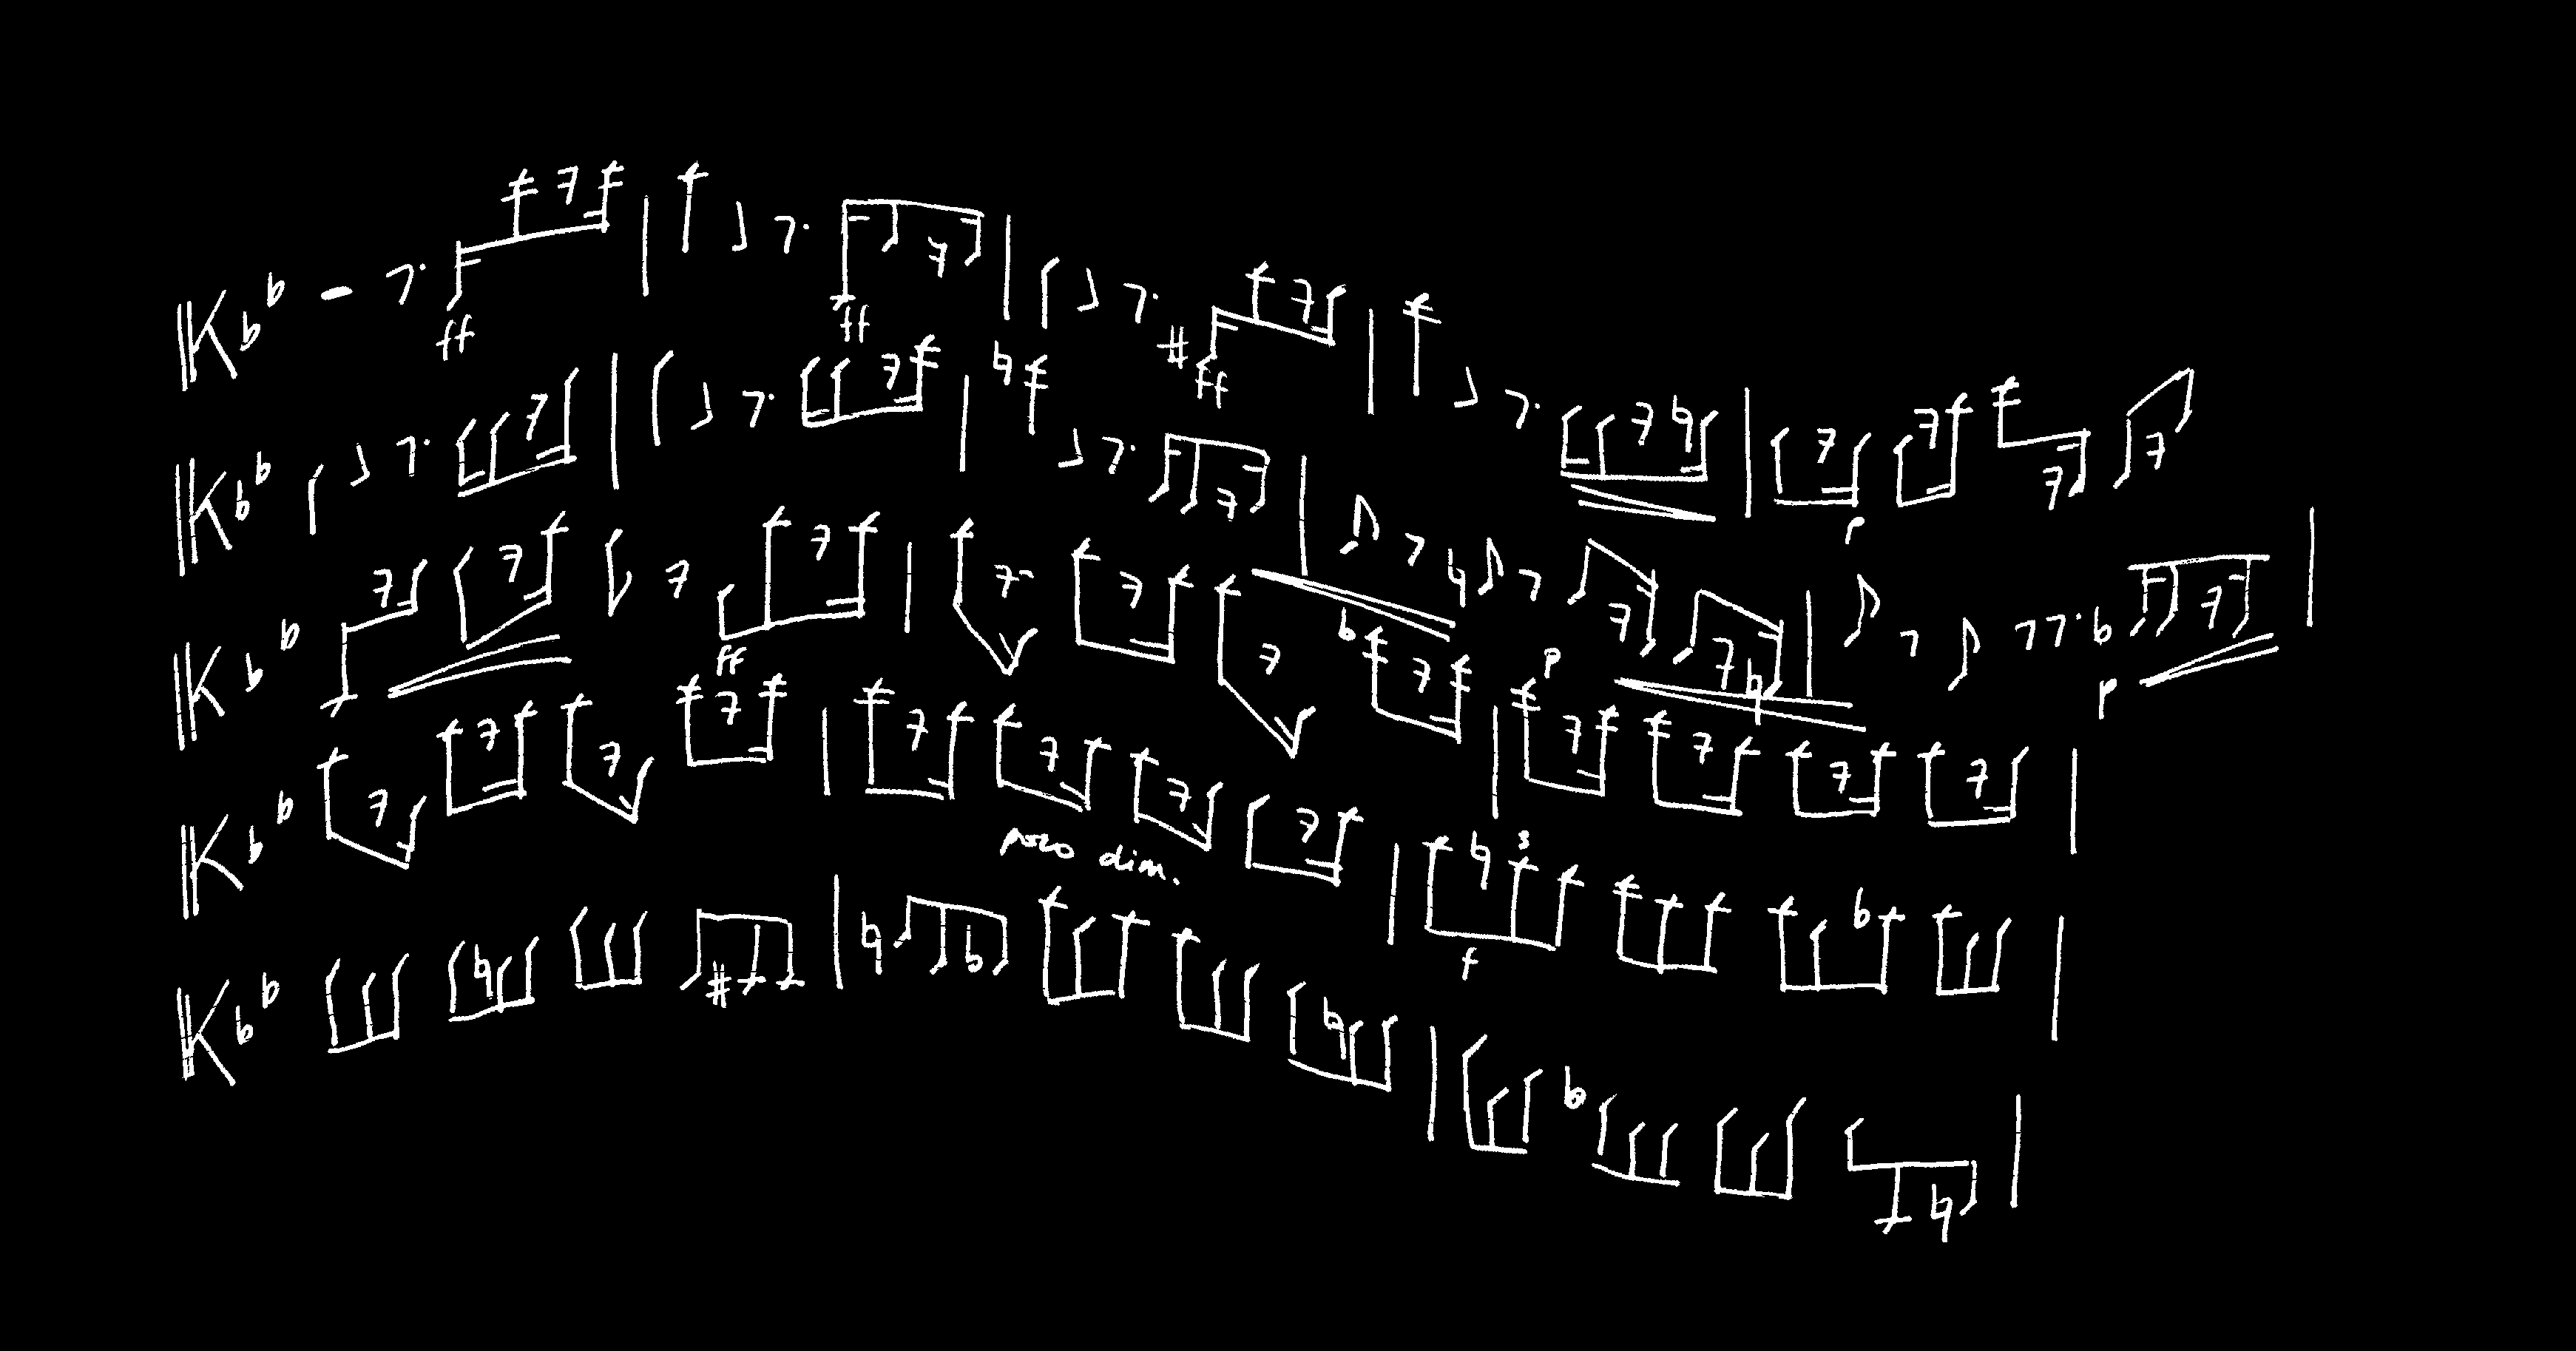 ff ff ff
p
ff p p
poco dim.
f 3